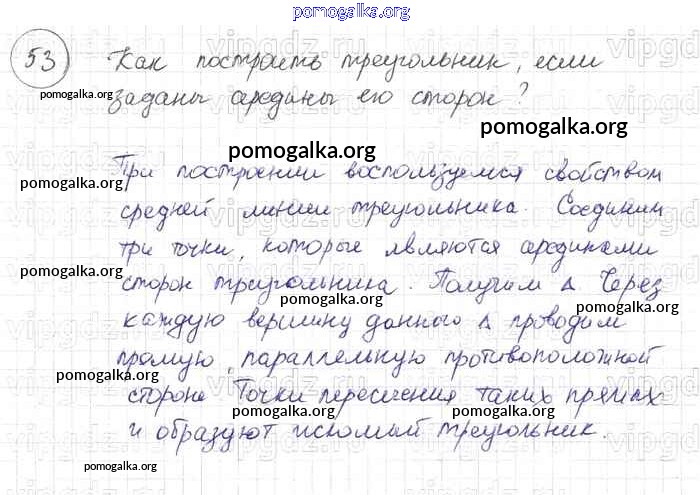 pomogalka.org
53 Как построить треугольник, если
pomogalka.org
заданы средины его сторон?
pomogalka.org
pomogalka.org
При построении воспользуемся свойством
pomogalka.org
средней линии треугольника. Соединим
три точки, которые являются срединами
pomogalka.org
сторон треугольника. Получим Δ. Через
pomogalka.org
pomogalka.org
каждую вершину данного Δ проводим
прямую, параллельную противоположной
pomogalka.org
pomogalka.org
стороне Точки пересечения таких прямых
pomogalka.org
pomogalka.org
и образуют искомый треугольник.
pomogalka.org